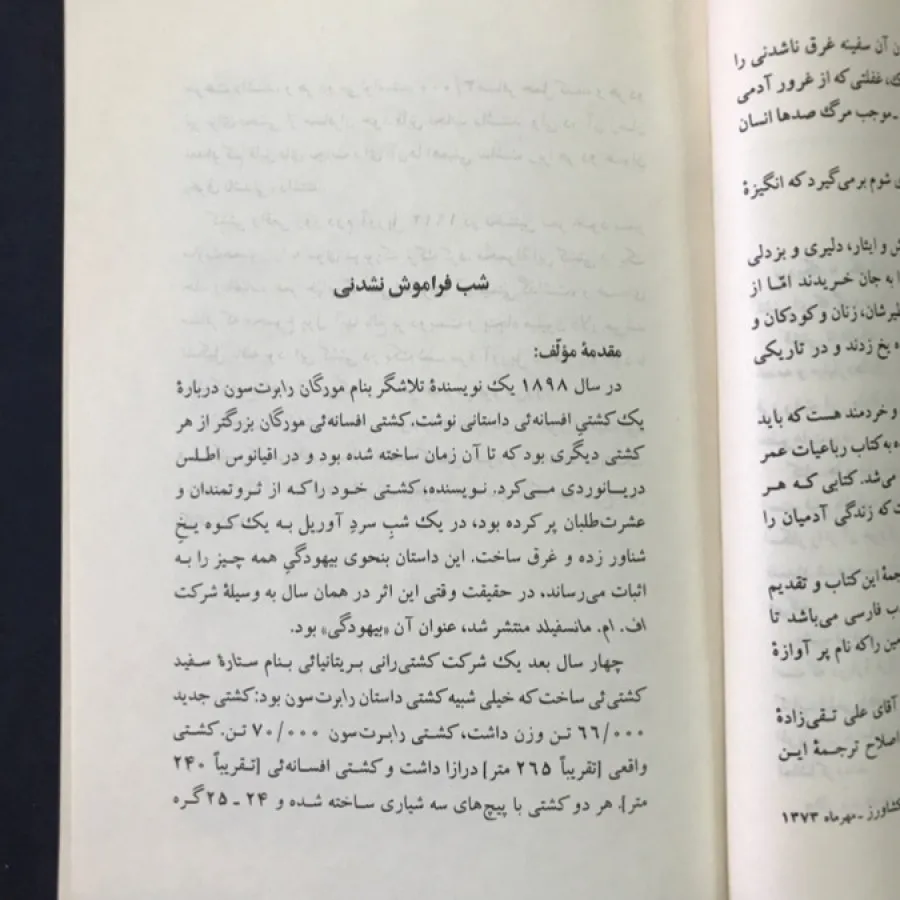 ن آن سفینه غرق ناشدنی را
ک، غفلتی که از غرور آدمی
ـ موجب مرگ صدها انسان
ی شوم برمی‌گیرد که انگیزهٔ
ش و ایثار، دلیری و بزدلی
ا به جان خریدند امّا از
ظیرشان، زنان و کودکان و
ه یخ زدند و در تاریکی
و خردمند هست که باید
ه به کتاب رباعیات عمر
می‌شد. کتابی که هر
ت که زندگی آدمیان را
جمهٔ این کتاب و تقدیم
ب فارسی می‌باشد تا
مین را که نام پر آوازهٔ
آقای علی تقی‌زادهٔ
اصلاح ترجمهٔ این
کشاورز ـ مهرماه ۱۳۷۳
شب فراموش نشدنی
مقدمهٔ مؤلّف:
در سال ۱۸۹۸ یک نویسندهٔ تلاشگر بنام مورگان رابرت‌سون دربارهٔ
یک کشتیِ افسانه‌ئی داستانی نوشت. کشتی افسانه‌ئی مورگان بزرگتر از هر
کشتی دیگری بود که تا آن زمان ساخته شده بود و در اقیانوس اطلس
دریانوردی می‌کرد. نویسنده، کشتی خود را که از ثروتمندان و
عشرت‌طلبان پر کرده بود، در یک شبِ سردِ آوریل به یک کوه یخِ
شناور زده و غرق ساخت. این داستان بنحوی بیهودگیِ همه چیز را به
اثبات می‌رساند، در حقیقت وقتی این اثر در همان سال به وسیلهٔ شرکت
اف. ام. مانسفیلد منتشر شد، عنوان آن «بیهودگی» بود.
چهار سال بعد یک شرکت کشتی‌رانی بریتانیائی بنام ستارهٔ سفید
کشتی‌ئی ساخت که خیلی شبیه کشتی داستان رابرت‌سون بود: کشتی جدید
۶۶/۰۰۰ تن وزن داشت، کشتی رابرت‌سون ۷۰/۰۰۰ تن. کشتی
واقعی [تقریباً ۲۶۵ متر] درازا داشت و کشتی افسانه‌ئی [تقریباً ۲۴۰
متر]. هر دو کشتی با پیچ‌های سه شیاری ساخته شده و ۲۴ ـ ۲۵ گره